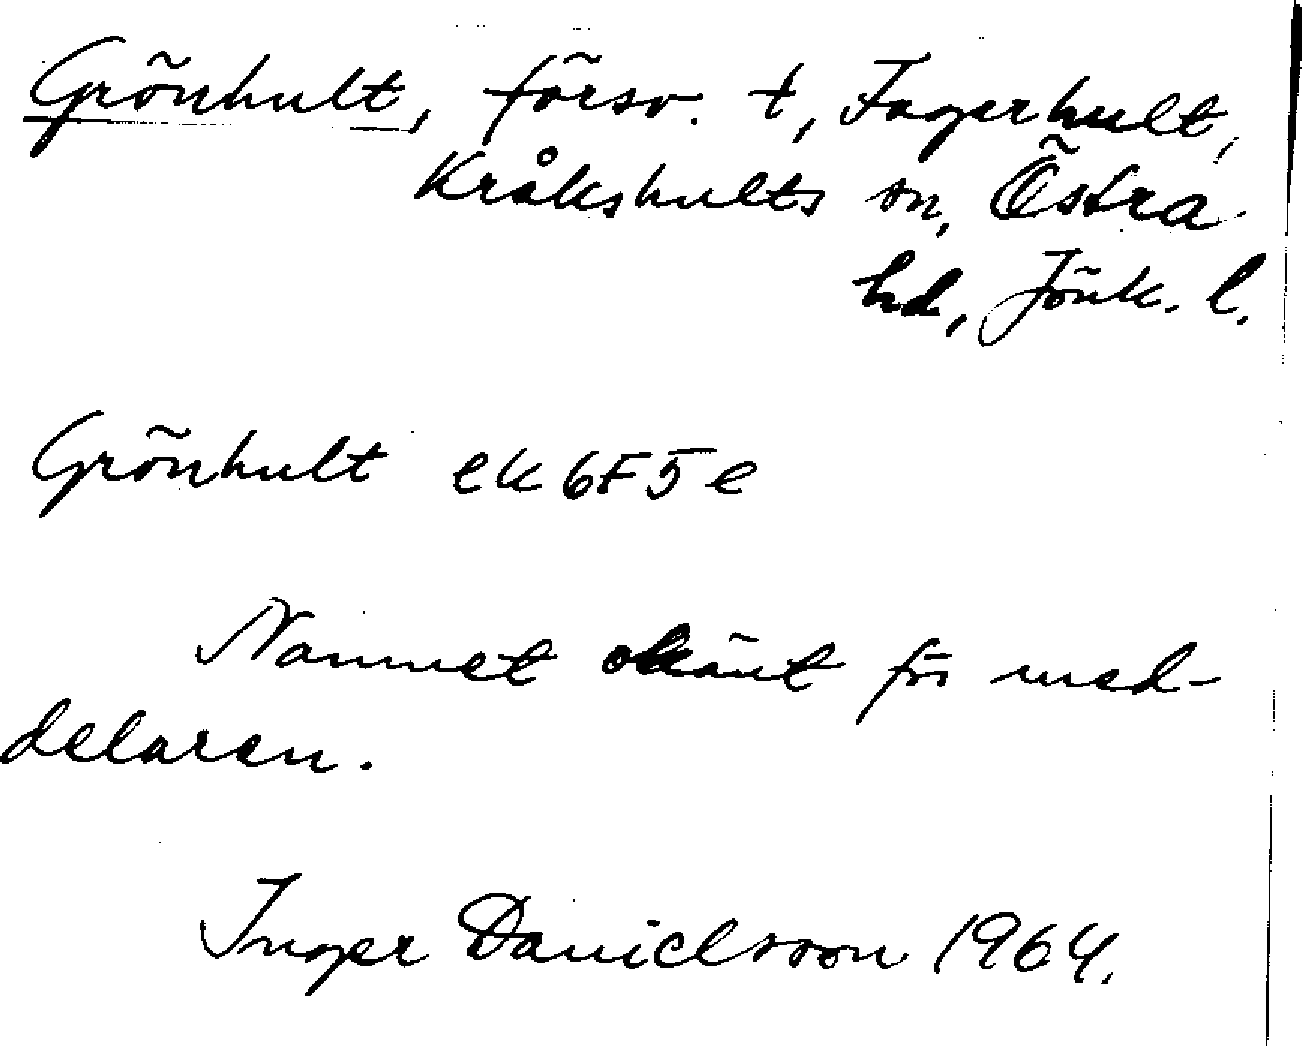 Grönhult, försv. t, Fagerhult,
Kråkshults sn, Östra
hd, Jönk. l.
Grönhult ek 6F5e
Namnet okänt för med-
delaren.
Inger Danielsson 1964.